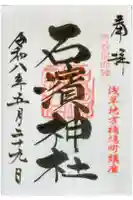 奉拝
石濱神社
令和八年五月二十九日
浅草地方橋場町鎮座